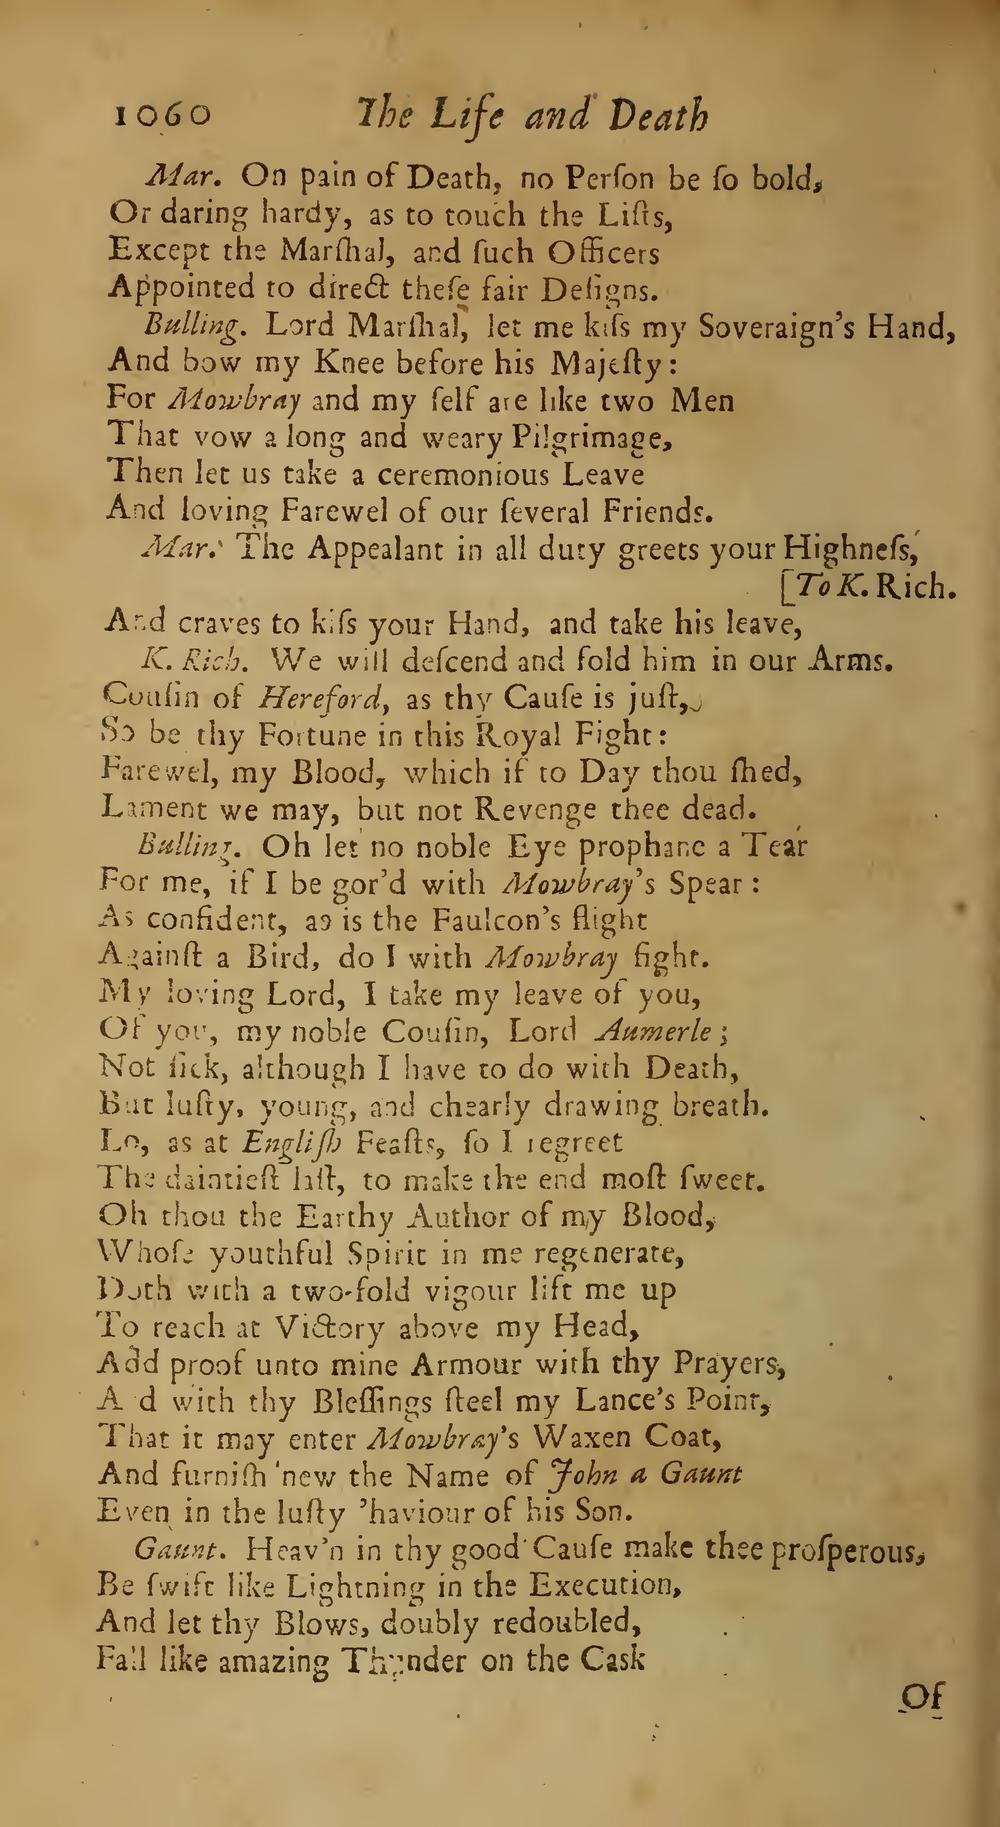 1060 The Life and Death
Mar. On pain of Death, no Perſon be ſo bold,
Or daring hardy, as to touch the Liſts,
Except the Marſhal, and ſuch Officers
Appointed to direct theſe fair Deſigns.
Bulling. Lord Marſhal, let me kiſs my Soveraign's Hand,
And bow my Knee before his Majeſty:
For Mowbray and my ſelf are like two Men
That vow a long and weary Pilgrimage,
Then let us take a ceremonious Leave
And loving Farewel of our ſeveral Friends.
Mar. The Appealant in all duty greets your Highneſs,
[To K. Rich.
And craves to kiſs your Hand, and take his leave,
K. Rich. We will deſcend and fold him in our Arms.
Couſin of Hereford, as thy Cauſe is juſt,
So be thy Fortune in this Royal Fight:
Farewel, my Blood, which if to Day thou ſhed,
Lament we may, but not Revenge thee dead.
Bulling. Oh let no noble Eye prophane a Tear
For me, if I be gor'd with Mowbray's Spear:
As confident, as is the Faulcon's flight
Againſt a Bird, do I with Mowbray fight.
My loving Lord, I take my leave of you,
Of you, my noble Couſin, Lord Aumerle;
Not ſick, although I have to do with Death,
But luſty, young, and chearly drawing breath.
Lo, as at Engliſh Feaſts, ſo I regreet
The daintieſt laſt, to make the end moſt ſweet.
Oh thou the Earthy Author of my Blood,
Whoſe youthful Spirit in me regenerate,
Doth with a two-fold vigour lift me up
To reach at Victory above my Head,
Add proof unto mine Armour with thy Prayers,
A d with thy Bleſſings ſteel my Lance's Point,
That it may enter Mowbray's Waxen Coat,
And furniſh new the Name of John a Gaunt
Even in the luſty 'haviour of his Son.
Gaunt. Heav'n in thy good Cauſe make thee proſperous,
Be ſwift like Lightning in the Execution,
And let thy Blows, doubly redoubled,
Fall like amazing Thunder on the Cask
Of